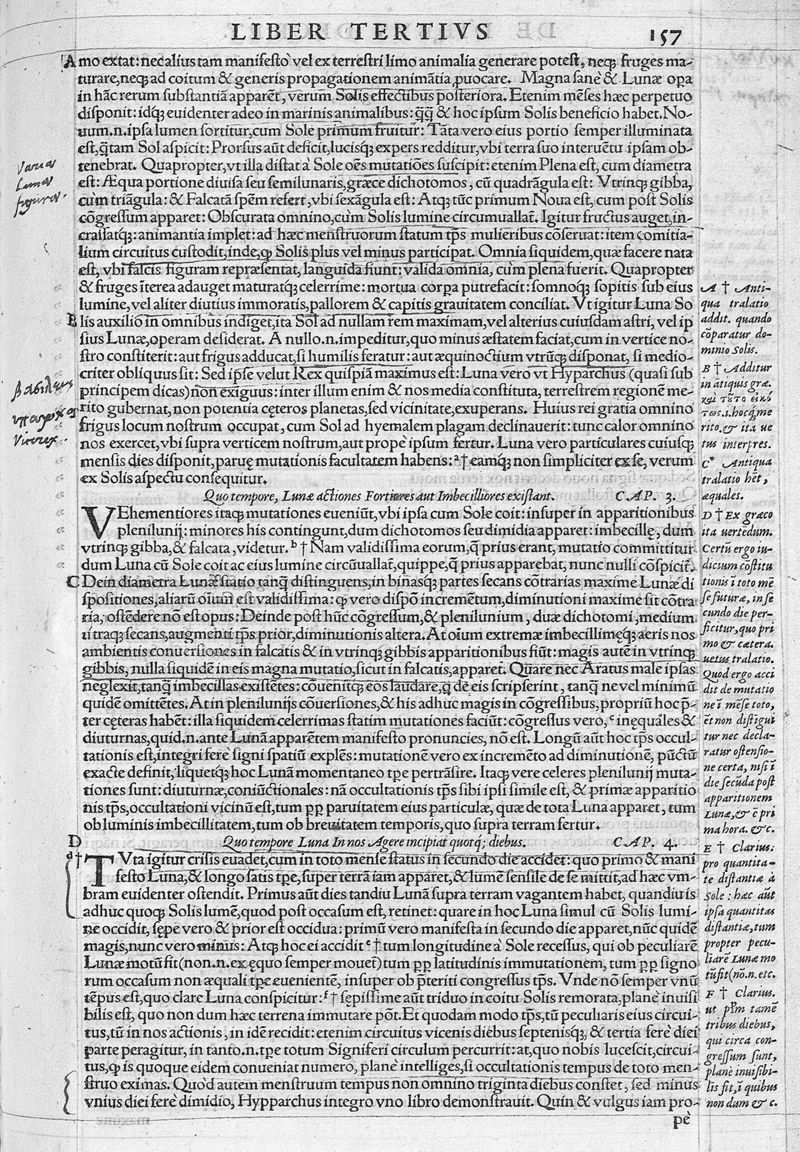 LIBER TERTIVS 157
Amo extat: nec alius tam manifesto vel ex terrestri limo animalia generare potest, neq; fruges ma-
turare, neq; ad coitum & generis propagationem animātia ꝓuocare. Magna sanè & Lunæ oꝑa
in hāc rerum substantiā apparēt, verum Solis effectibus posteriora. Etenim mēses hæc perpetuo
disponit: idq; euidenter adeo in marinis animalibus: q̄q̄ & hoc ipsum Solis beneficio habet. No-
uum.n.ipsa lumen sortitur, cum Sole primum fruitur: Tāta vero eius portio semper illuminata
est, q̄tam Sol aspicit: Prorsus aūt deficit, lucisq; expers redditur, vbi terra suo interuētu ipsam ob-
tenebrat. Quapropter, vt illa distat à Sole oēs mutatiōes suscipit: etenim Plena est, cum diametra
est: Æqua portione diuisa seu semilunaris, græce dichotomos, cū quadrāgula est: Vtrinq; gibba,
cum triāgula: & Falcatā spēm refert, vbi sexāgula est: Atq; tūc primum Noua est, cum post Solis
cōgressum apparet: Obscurata omnino, cum Solis lumine circumuallaī. Igitur fructus auget, in-
crassatq;: animantia implet: ad hæc menstruorum statum tp̄s mulieribus cōseruat: item comitia-
lium circuitus custodit, inde, ꝙ Solis plus vel minus participat. Omnia siquidem, quæ facere nata
est, vbi falcis figuram repræsentat, languida fiunt: valida omnia, cum plena fuerit. Quapropter
& fruges īterea adauget maturatq; celerrime: mortua corpa putrefacit: somnoq; sopitis sub eius
lumine, vel aliter diutius immoratis, pallorem & capitis grauitatem conciliat. Vt igitur Luna So
B lis auxilio in omnibus indiget, ita Sol ad nullam rem maximam, vel alterius cuiusdam astri, vel ip
sius Lunæ, operam desiderat. A nullo.n.impeditur, quo minus æstatem faciat, cum in vertice no-
stro constiterit: aut frigus adducat, si humilis feratur: aut æquinoctium vtrūq; disponat, si medio-
criter obliquus sit: Sed ipse velut Rex quispiā maximus est: Luna vero vt Hyparchus (quasi sub
principem dicas) non exiguus: inter illum enim & nos media constituta, terrestrem regionē me-
rito gubernat, non potentia cęteros planetas, sed vicinitate, exuperans. Huius rei gratia omnino
frigus locum nostrum occupat, cum Sol ad hyemalem plagam declinauerit: tunc calor omnino
nos exercet, vbi supra verticem nostrum, aut prope ipsum fertur. Luna vero particulares cuiusq;
mensis dies disponit, paruę mutationis facultatem habens: ª † eamq; non simpliciter ex se, verum
ex Solis aspectu consequitur.
Quo tempore, Lunæ actiones Fortiores aut Imbecilliores existant. CAP. 3.
VEhementiores itaq; mutationes eueniūt, vbi ipsa cum Sole coit: insuper in apparitionibus
plenilunij: minores his contingunt, dum dichotomos seu dimidia apparet: imbecille, dum
vtrinq; gibba, & falcata, videtur. ᵇ † Nam validissima eorum, q̄ prius erant, mutatio committitur
dum Luna cū Sole coit ac eius lumine circūuallaī, quippe, q̄ prius apparebat, nunc nulli cōspicit.
C Dein diametra Lunæ statio tanq̄ distinguens, in binasq; partes secans cōtrarias maxime Lunæ di
spositiones, aliarū oium est validissima: ꝙ vero dispō incremētum, diminutioni maxime sit cōtra
ria, ostēdere nō est opus: Deinde post hūc cōgressum, & plenilunium, duæ dichotomi, medium
vtraq; secans, augmenti tp̄s prior, diminutionis altera. At oium extremæ imbecillimęq; aeris nos
ambientis conuersiones in falcatis & in vtrinq; gibbis apparitionibus fiūt: magis autē in vtrinq;
gibbis, nulla siquidē in eis magna mutatio, sicut in falcatis, apparet. Quare nec Aratus male ipsas
neglexit, tanq̄ imbecillas existētes: cōuenitq; eos laudare, q̄ de eis scripserint, tanq̄ ne vel minimū
quidē omittētes. At in plenilunijs cōuersiones, & his adhuc magis in cōgressibus, propriū hoc p̄-
ter cęteras habēt: illa siquidem celerrimas statim mutationes faciūt: cōgressus vero, ᶜ inequales &
diuturnas, quid.n.ante Lunā apparētem manifesto pronuncies, nō est. Longū aūt hoc tp̄s occul-
tationis est, integri ferè signi spatiū explēs: mutationē vero ex incremēto ad diminutionē, pūctū
exacte definit, liquetq; hoc Lunā momentaneo tpe pertrāsire. Itaq; vere celeres plenilunij muta-
tiones sunt: diuturnæ, coniūctionales: nā occultationis tp̄s sibi ipsi simile est, & primæ apparitio
nis tp̄s, occultationi vicinū est, tum ꝓꝓ paruitatem eius particulæ, quæ de tota Luna apparet, tum
ob luminis imbecillitatem, tum ob breuitatem temporis, quo supra terram fertur.
D Quo tempore Luna In nos Agere incipiat quotq; diebus. CAP. 4.
ᵈ† TVta igitur crisis euadet, cum in toto mense status in secundo die accidet: quo primo & mani
festo Luna, & longo satis tpe, super terrā iam apparet, & lumē sensile de se mittit, ad hæc vm-
bram euidenter ostendit. Primus aūt dies tandiu Lunā supra terram vagantem habet, quandiu is
adhuc quoq; Solis lumē, quod post occasum est, retinet: quare in hoc Luna simul cū Solis lumi-
ne occidit, sępe vero & prior est occidua: primū vero manifesta in secundo die apparet, nūc quidē
magis, nunc vero minus: Atq; hoc ei accidit ᵉ † tum longitudine à Sole recessus, qui ob peculiarē
Lunæ motū fit (non.n.ex ęquo semper mouet) tum ꝓꝓ latitudinis immutationem, tum ꝓꝓ signo
rum occasum non æquali tpe euenientē, insuper ob p̄teriti congressus tp̄s. Vnde nō semper vnū
tēpus est, quo clare Luna conspicitur: ᶠ † sępissime aūt triduo in coitu Solis remorata, planè inuisi
bilis est, quo non dum hæc terrena immutare pōt. Et quodam modo tp̄s, tū peculiaris eius circui-
tus, tū in nos actionis, in idē recidit: etenim circuitus vicenis diebus septenisq;, & tertia ferè diei
parte peragitur, in tanto.n.tpe totum Signiferi circulum percurrit: at, quo nobis lucescit, circui-
tus, ꝙ is quoque eidem conueniat numero, planè intelliges, si occultationis tempus de toto men-
struo eximas. Quòd autem menstruum tempus non omnino triginta diebus constet, sed minus
vnius diei ferè dimidio, Hypparchus integro vno libro demonstrauit. Quin & vulgus iam pro-
pè
Variæ
Lunæ
figuræ.
A † Anti-
qua tralatio
addit. quando
cōparatur do-
minio Solis.
B † Additur
in ātiquis græ.
καὶ τοῦτο εἰκό
τως.i.hocq; me
rito, & ita ue
tus interpres.
C* Antiqua
tralatio hēt,
æquales.
D † Ex græco
ita uertēdum.
Certū ergo iu-
dicium cōstitu
tionis ī toto mē
se futuræ, in se
cundo die per-
ficitur, quo pri
mo & cætera.
uetus tralatio.
Quod ergo acci
dit de mutatio
ne ī mēse toto,
ēt non distigui
tur nec decla-
ratur ostensio-
ne certa, nisi ī
die secūda post
apparitionem
Lunæ, & ē pri
ma hora. &c.
E † Clarius:
pro quantita-
te distantiæ à
Sole: hæc aūt
ipsa quantitas
distantiæ, tum
propter pecu-
liarē Lunæ mo
tū fit (nō.n. etc.
F † Clarius.
ut plm̄ tamē
tribus diebus,
qui circa con-
gressum sunt,
planè inuisibi-
lis fit, ī quibus
non dum & c.